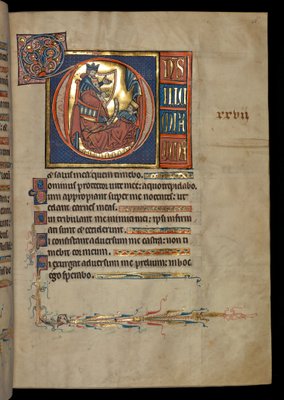 xxvii
& salus mea quem timebo.
Dominus protector uite mee: a quo trepidabo.
Dum appropiant super me nocentes: ut
edant carnes meas.
Qui tribulant me inimici mei: ipsi infirm
ati sunt & ceciderunt.
Si consistant aduersum me castra: non ti
mebit cor meum.
Si exurgat aduersum me prelium: in hoc
ego sperabo.